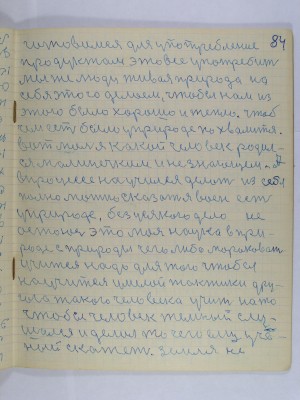 84
готовимся для употребление
продуктам это все употребит
мы же люди живая природа на
себя этого делаем, чтобы нам из
этого было хорошо и тепло. чтоб
было у природе
вот какой человек родил-
ся маленьким и незнающем. А
в процессе научился делать из себя
можно сказать вам ест
у природе, без целого дело не
это моя наука в при-
роде с природы чего либо
учится надо для того чтобы
научится умелой тактики дру-
гого такого человека учит на то
чтобы человек темный слу-
шался и делал то чего ему учё-
ный скажет. Земля не